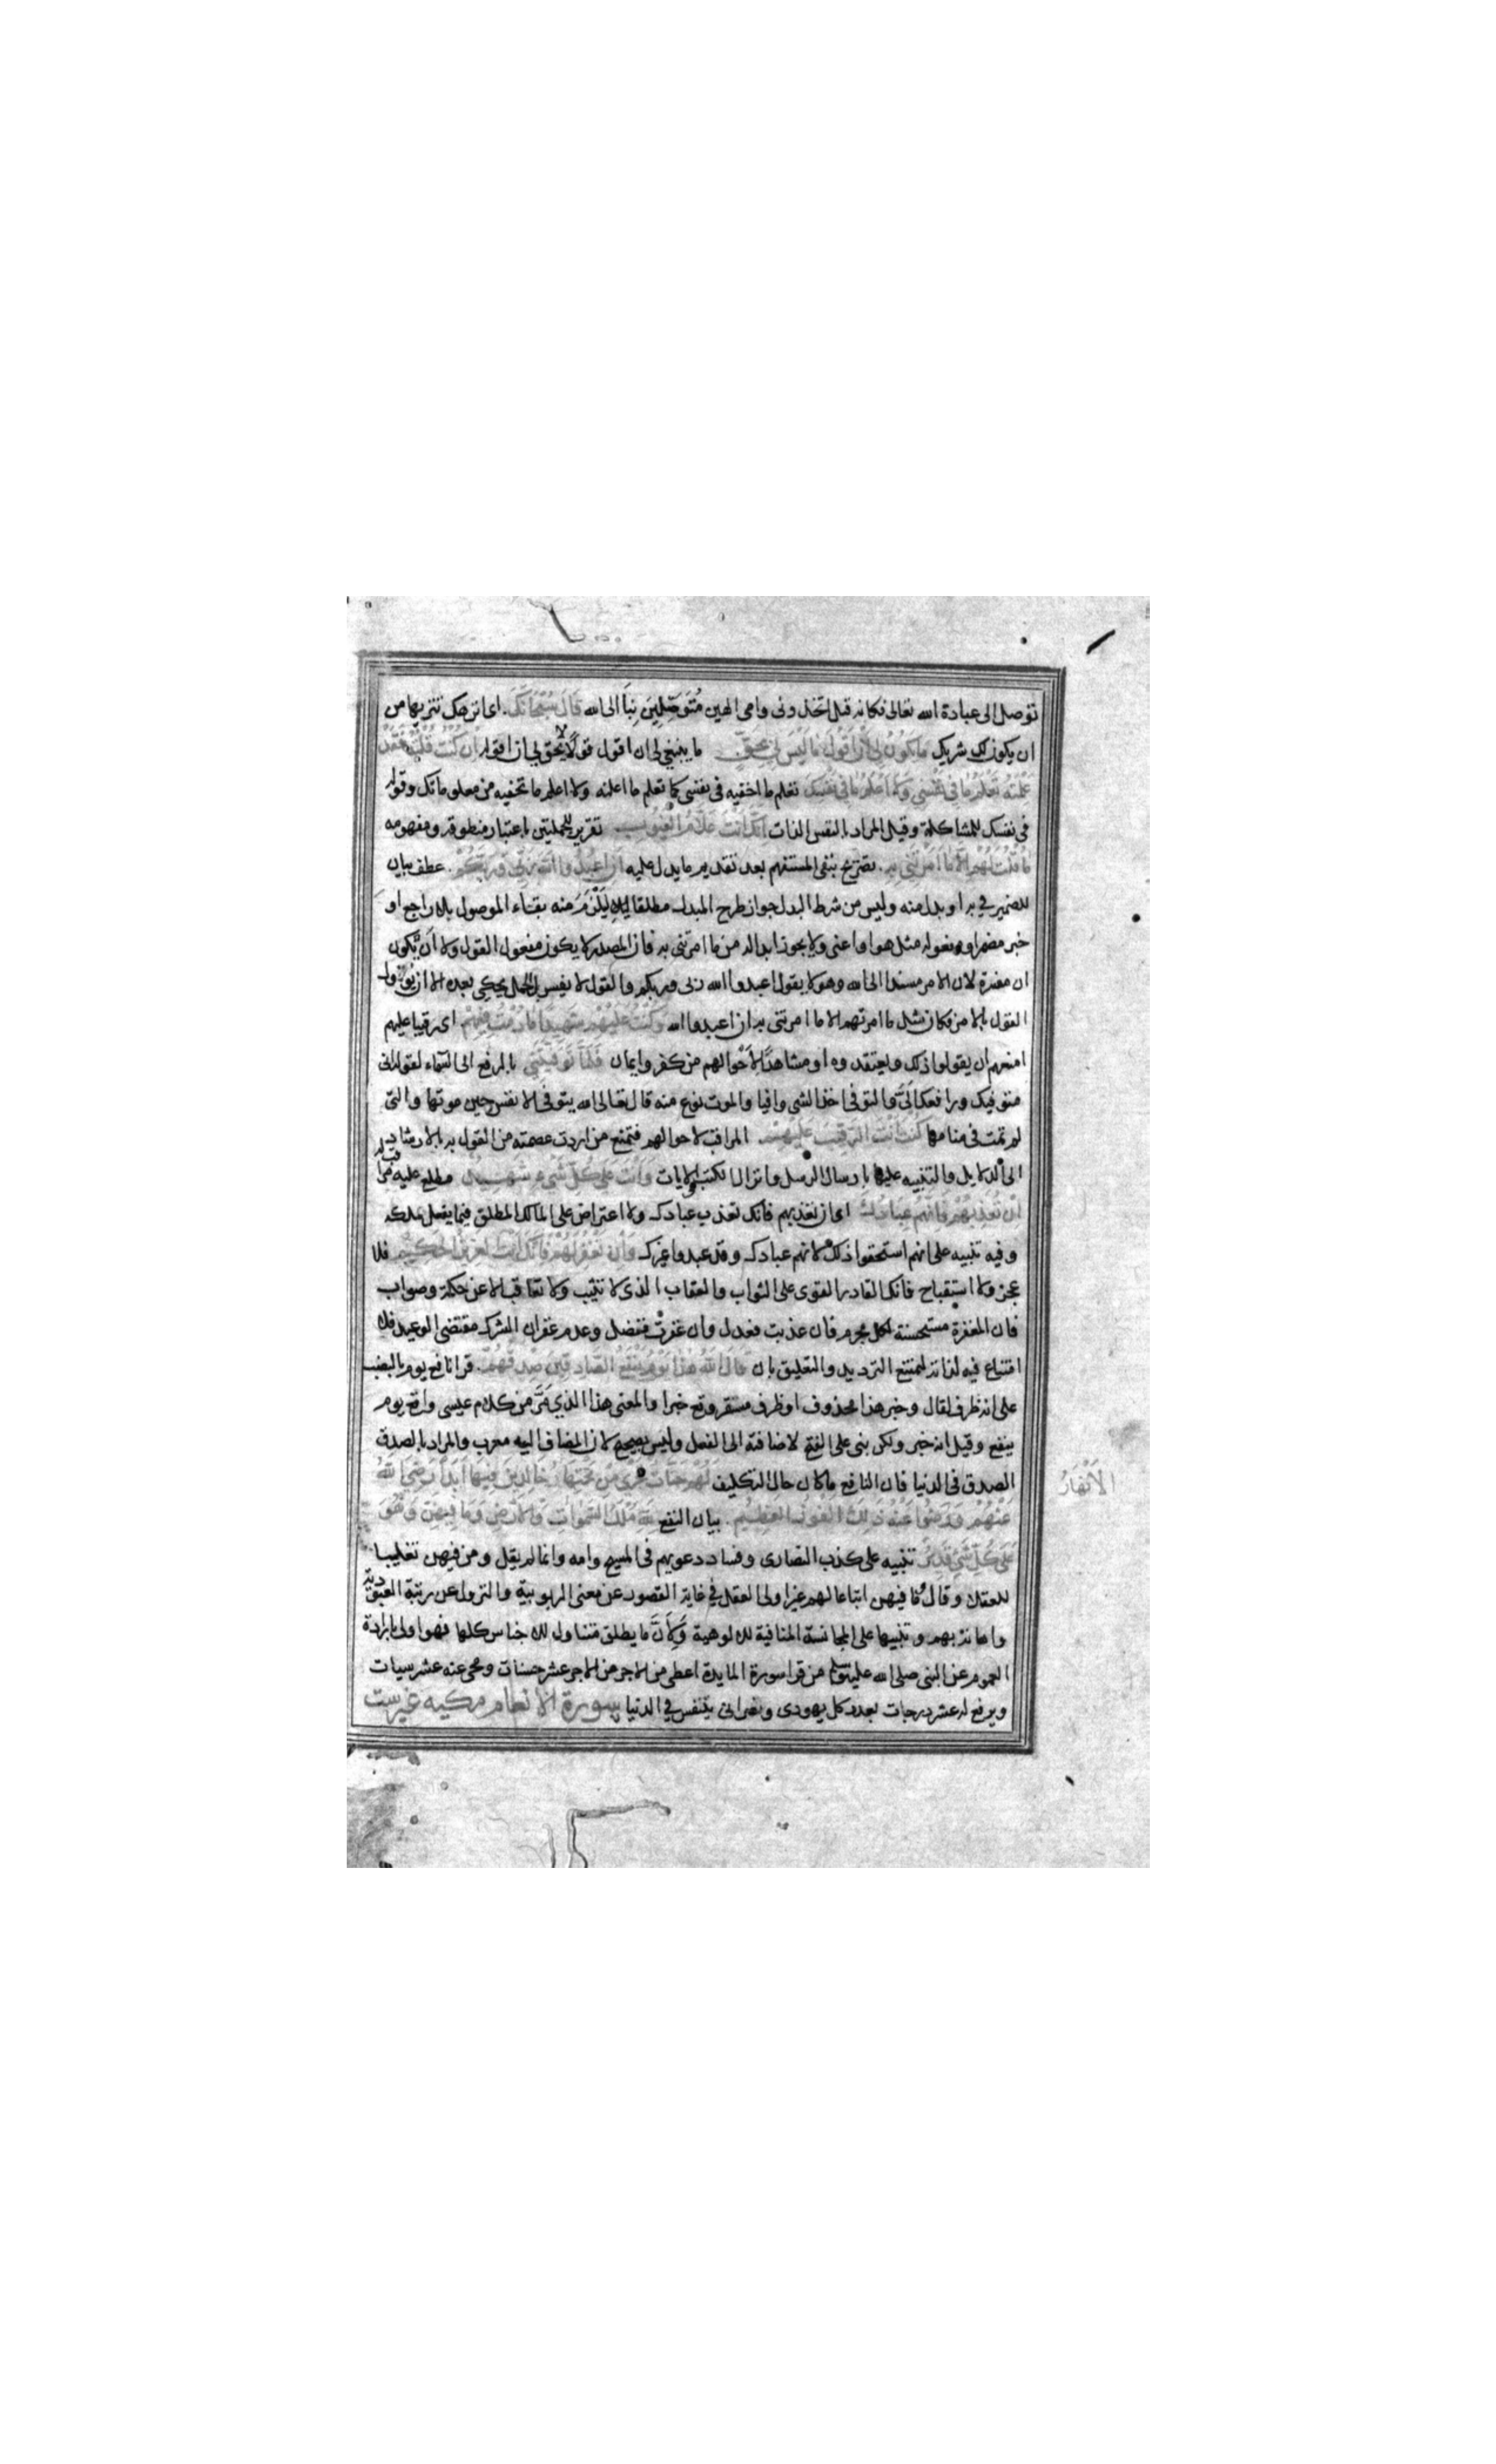 توصل الى عبادة الله تعالى فكانه قيل اتخذونى وامى الهين مُتَوَصِّلِيَن بِنَا الى الله قَالَ سُبْحَانَكَ. اى انزهك تنزيها من
ان يكون لك شريك مَا يَكُونُ لِى اَنْ اَقُولَ مَا لَيْسَ لِى بِحَقٍّ ما ينبغى لى ان اقول قولا لا يحق لى ان اقوله اِنْ كُنْتُ قُلْتُهُ فَقَدْ
عَلِمْتَهُ تَعْلَمُ مَا فى نَفْسِى وَلا اَعْلَمُ مَا فى نَفْسِكَ تعلم ما اخفيه فى نفسى كما تعلم ما اعلنه ولا اعلم ما تخفيه من معلوماتك وقوله
فى نفسك للمشاكلة وقيل المراد بالنفس الذات اِنَّكَ اَنْتَ عَلَّامُ الْغُيُوبِ تقرير للجملتين باعتبار منطوقه ومفهومه
مَا قُلْتُ لَهُمْ اِلَّا مَا اَمَرْتَنِى بِهِ. تصريح بنفى المستفهم بعد تقديم ما يدل عليه اَنِ اعْبُدُوا اللهَ رَبِّى وَرَبَّكُمْ. عطف بيان
للضمير في به او بدل منه وليس من شرط البدل جواز طرح المبدل مطلقا ليلا يَلْزَمَ منه بقاء الموصول بلا راجع او
خبر مضمر او مفعوله مثل هو او اعنى ولا يجوز ابداله من ما امرتنى به فان المصدر لا يكون مفعول القول ولا اَن تَكون
ان مفسرة لان الامر مسند الى الله وهو لا يقول اعبدوا الله ربى وربكم والقول لا يفسر بل الجمل يحكى بعده الا ان يؤول
القول بالامر فكان مثل ما امرتهم الا ما امرتنى به ان اعبدوا الله وَكُنْتُ عَلَيْهِمْ شَهِيدًا مَا دُمْتُ فِيهِمْ اى رقيبا عليهم
امنعهم ان يقولوا ذلك ويعتقدوه او مشاهدًا لاَحْوالهم من كفر وايمان فَلَمَّا تَوَفَّيْتَنِى بالرفع الى السَّماء لقوله انى
متوفيك ورافعك اِلَىَّ والتوفى اخذ الشى وافيا والموت نوع منه قال تعالى الله يتوفى الانفس حين موتها والتى
لم تمت فى منامها كُنْتَ اَنْتَ الرَّقِيبَ عَلَيْهِمْ. المراقب لاحوالهم فتمنع من اردت عصمته من القول به بالارشاد
الى الدلايل والتنبيه عليها بارسال الرسل وانزال الايات وَاَنْتَ عَلَى كُلِّ شَىْءٍ شَهِيدٌ مطلع عليه مراقب له
اِنْ تُعَذِّبْهُمْ فَاِنَّهُمْ عِبَادُكَ اى ان تعذبهم فانك تعذب عبادك ولا اعتراض على المالك المطلق فيما يفعل بملكه
وفيه تنبيه على انهم استحقوا ذلك لانهم عبادك وقد عبدوا غيرك وَاِنْ تَغْفِرْ لَهُمْ فَاِنَّكَ اَنْتَ الْعَزِيزُ الْحَكِيمُ فلا
عجز ولا استقباح فانك القادر القوى على الثواب والعقاب الذى لا تثيب ولا تعاقب الا عن حكمة وصواب
فان المغفرة مستحسنة لكل مجرم فان عذبت فعدل وان غفرت ففضل وعدم غفران الشرك مقتضى الوعيد فلا
امتناع فيه لذاته ليمتنع الترديد والتعليق بان قَالَ اللهُ هَذَا يَوْمُ يَنْفَعُ الصَّادِقِينَ صِدْقُهُمْ. قرا نافع يوم بالنصب
على انه ظرف لقال وخبر هذا محذوف او ظرف مستقر وقع خبرا والمعنى هذا الذي مَرَّ من كلام عيسى واقع يوم
ينفع وقيل انه خبر ولكن بنى على الفتح لاضافته الى الفعل وليس بصحيح لان المضاف اليه معرب والمراد بالصدق
الصدق فى الدنيا فان النافع ماكان حال التكليف لَهُمْ جَنَّاتٌ تَجْرِى مِنْ تَحْتِهَا خَالِدِينَ فِيهَا اَبَدًا رَضِىَ اللهُ
الْاَنْهَارُ
عَنْهُمْ وَرَضُوا عَنْهُ ذَلِكَ الْفَوْزُ الْعَظِيمُ. بيان النفع لِلَّهِ مُلْكُ السَّمَوَاتِ وَالْاَرْضِ وَمَا فِيهِنَّ وَهُوَ
عَلَى كُلِّ شَىْءٍ قَدِيرٌ تنبيه على كذب النصارى وفساد دعويهم فى المسيح وامه وانما لم يقل ومن فيهن تغليبا
للعقلا وقال وما فيهن اتباعا لهم غير اولى العقل في غاية القصور عن معنى الربوبية والنزول عن رتبة العبودية
واهانة بهم وتنبيها على المجانسة المنافية للالوهية وَلِاَنَّ ما يطلق متناول للاجناس كلها فهو اولى بارادة
العموم عن النبى صلى الله عليه وسلم من قرا سورة المايدة اعطى من الاجر من الاجر عشر حسنات ومحى عنه عشر سيات
ويرفع له عشر درجات بعدد كل يهودى ونصرانى يتنفس في الدنيا سورة الانعام مكيه غير ست